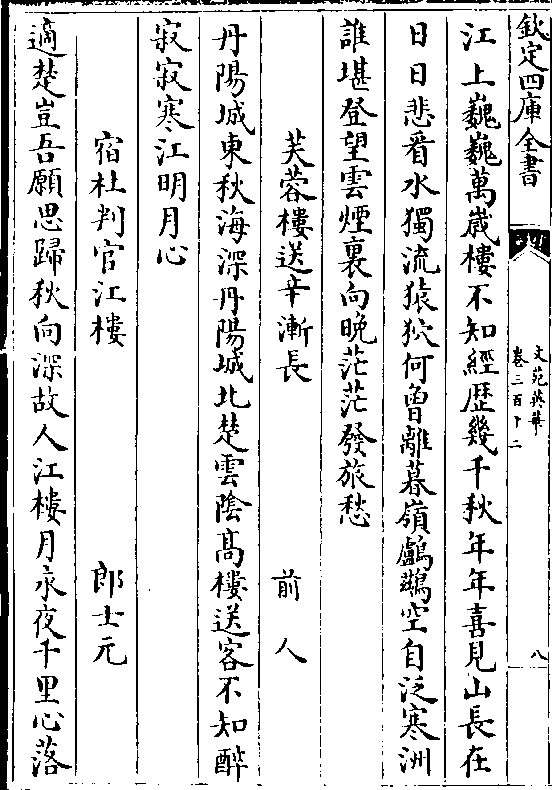 欽定四庫全書
文苑英華
卷三百十二
八
江上巍巍萬歲樓不知經歴幾千秋年年喜見山長在
日日悲看水獨流猿狖何曾離暮嶺鸕鷀空自泛寒洲
誰堪登望雲煙裏向晚茫茫發旅愁
芙蓉樓送辛漸長
前人
丹陽城東秋海深丹陽城北楚雲陰髙樓送客不知醉
寂寂寒江明月心
宿杜判官江樓
郎士元
適楚豈吾願思歸秋向深故人江樓月永夜千里心落